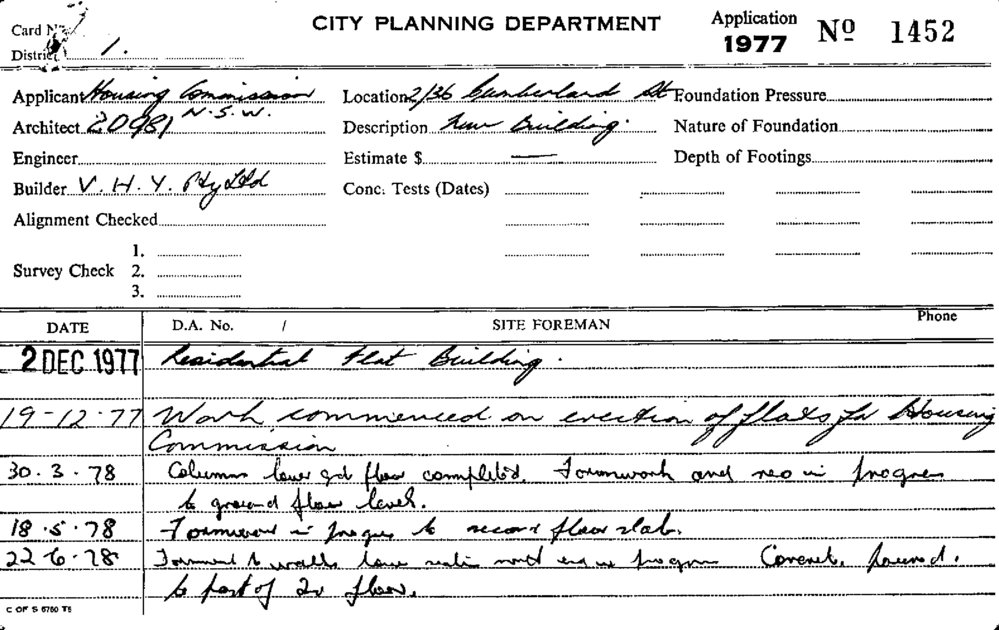 CITY PLANNING DEPARTMENT
Application
1977 Nº 1452
Card No.
District 1.
Applicant Housing Commission N.S.W.
Location 2/36 Cumberland St
Foundation Pressure
Architect 20981
Description New Building.
Nature of Foundation
Engineer
Estimate $ —
Depth of Footings
Builder V. H. Y. Pty Ltd
Conc. Tests (Dates)
Alignment Checked
Survey Check 1.
2.
3.
DATE D.A. No. / SITE FOREMAN Phone
2 DEC 1977 Residential Flat Building.
19-12-77 Work commenced on erection of flats for Housing
Commission
30.3.78 Columns lower gd floor completed. Formwork and reo in progress
to ground floor level.
18.5.78 Formwork in progress to second floor slab.
22-6-78 Formwork to walls lower north end in progress Concrete poured.
to part of floor.
C OF S 6760 T5